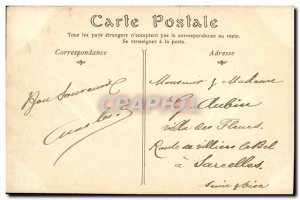 Carte Postale
Tous les pays étrangers n'acceptent pas la correspondance au recto.
Se renseigner à la poste.
Correspondance
Adresse
Bon Souvenir
Monsieur & Madame
G. Aubin
villa des Fleurs
Route de villiers le Bel
à Sarcelles
Seine & Oise